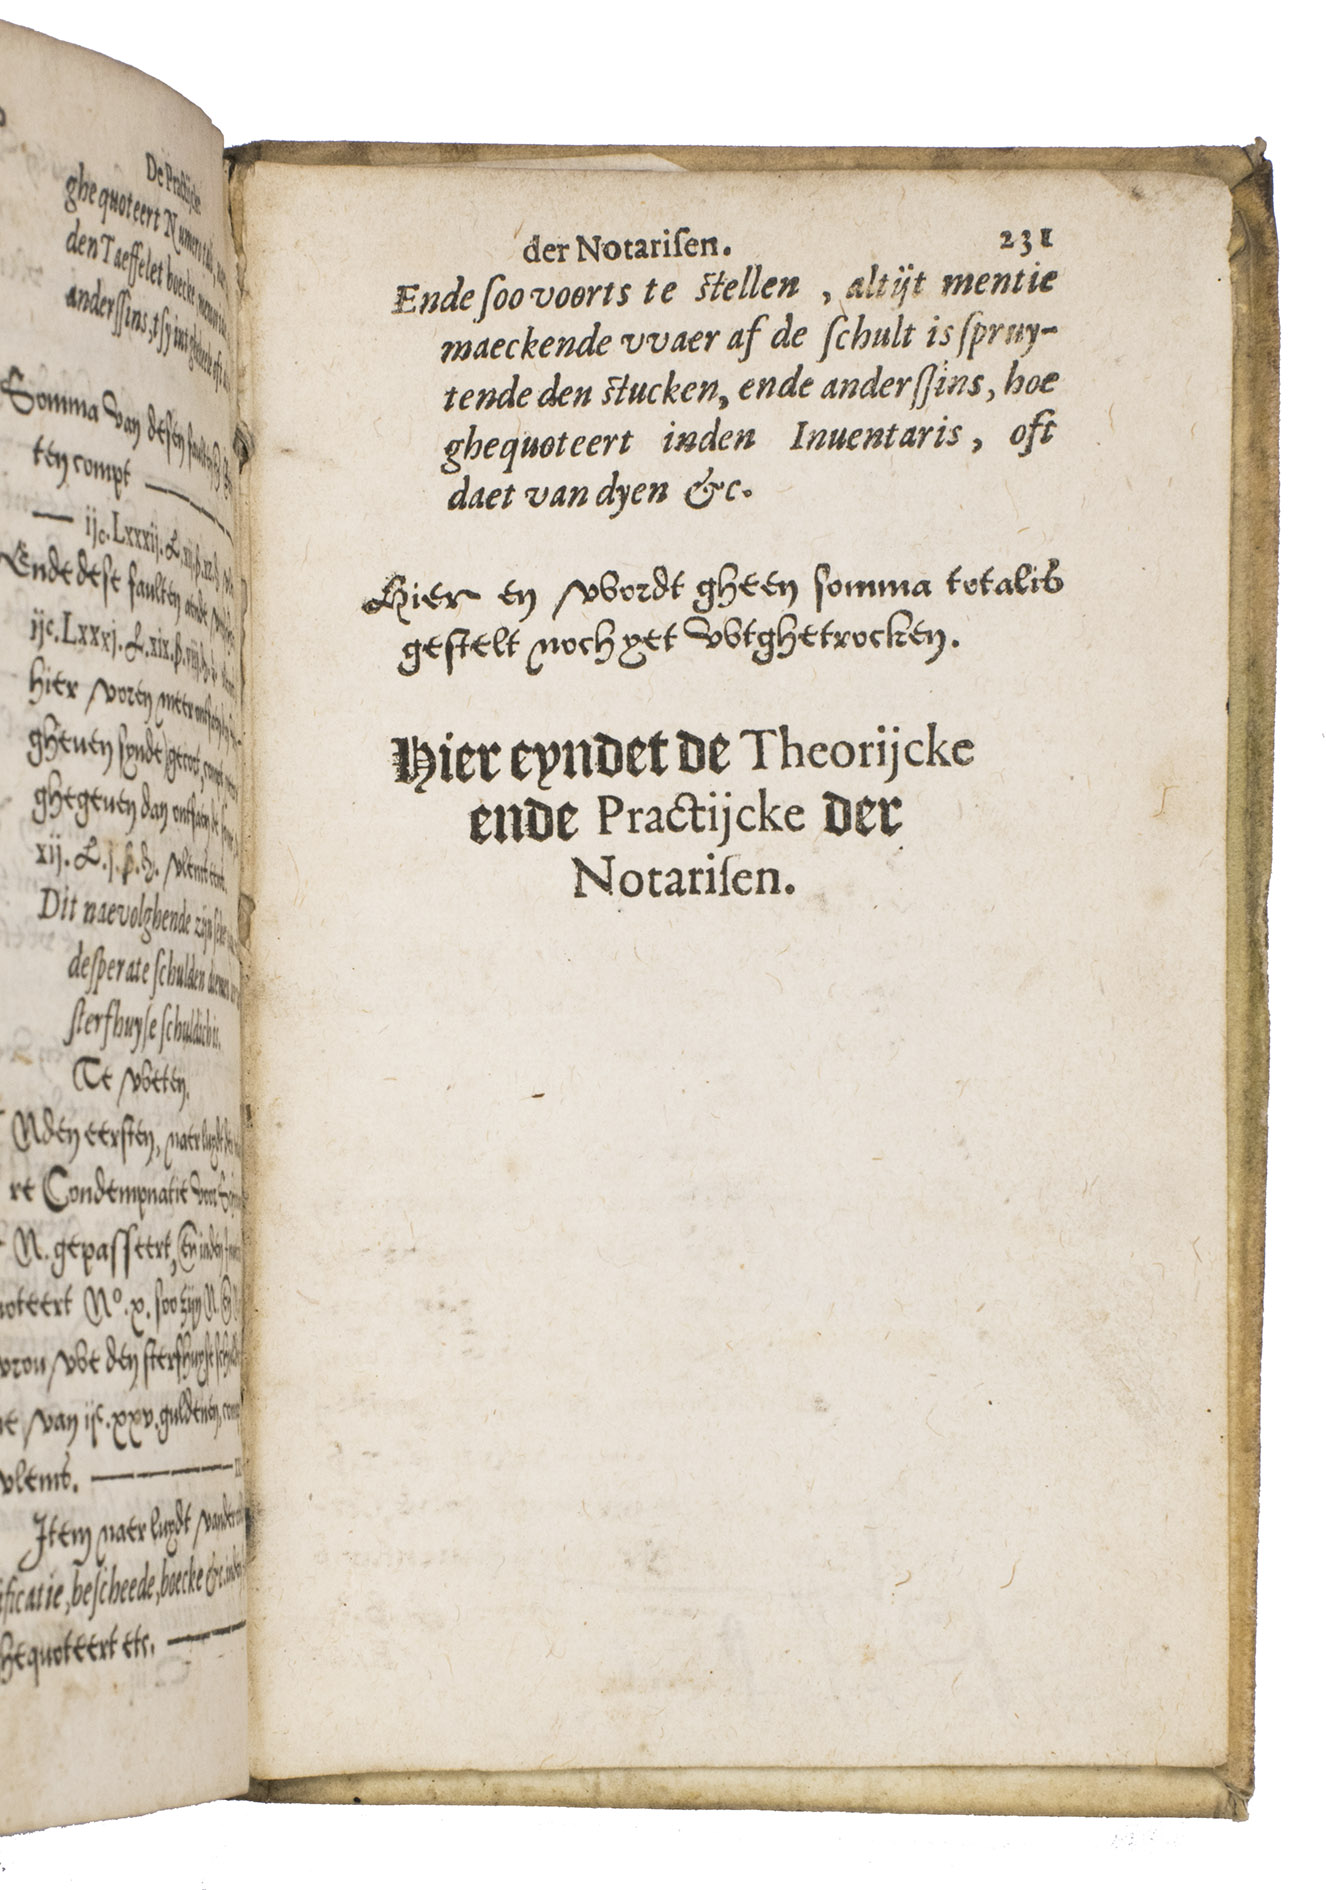 De Practijcke
ghequoteert Numero
den Taeffelet boecke
anderſſins, tſy int
Somma van desen
ten compt
ijc. Lxxxij. £. xij. ß.
Ende dese faulten
ijc. Lxxxj. £. xix. ß. viij.
hier voren meer
gheuen synde)
ghegeuen dan
xij. £. j. ß. vlemb
Dit naevolghende zijn
deſperate ſchulden
ſterfhuyſe ſchuldich
Te vveten.
Nden eersten, naer luydt
re Condempnatie voor
N. gepasseert, en inden
quoteert No. x. soo zijn N.
vrou vvt den sterfhuyse
van ijc. xxv. guldenen,
vlemb.
Item naer luydt vander
ificatie, beſcheede, boecke &c. inden
ghequoteert etc.
der Notariſen. 231
Ende ſoo voorts te ſtellen , altijt mentie
maeckende vvaer af de ſchult is ſpruy-
tende den ſtucken, ende anderſſins, hoe
ghequoteert inden Inuentaris, oft
daet van dyen &c.
Hier en vvordt gheen somma totalis
gestelt noch yet vvtghetrocken.
Hier eyndet de Theorijcke
ende Practijcke der
Notariſen.